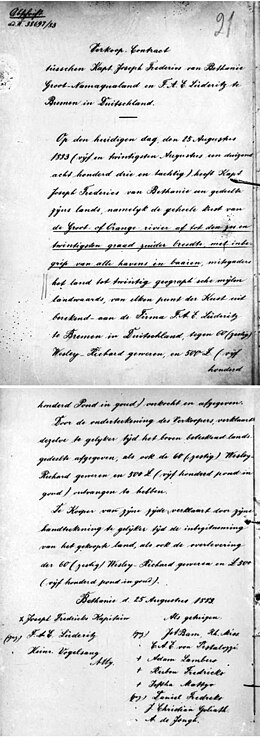 Abschrift
21
Verkoop-Contract
tusschen Kapt Joseph Frederics van Bethanie
Groot-Namaqualand en F.A.E. Lüderitz te
Bremen in Duitschland.
Op den huidigen dag, den 25 Augustus
1883 (vijf en twintigsten Augustus een duizend
acht honderd drie en tachtig) heeft Kapt
Joseph Frederics van Bethanie een gedeelte
zijns lands, namelijk de geheele kust van
de Groot- of Orange rivier af tot den zes en
twintigsten graad zuider breedte, met inbe-
grip van alle havens en baaien, mitsgaders
het land tot twintig geographsche mijlen
landwaards, van elken punt der Kust uit
berekend aan de Firma F.A.E. Lüderitz
te Bremen in Duitschland, tegen 60 (zestig)
Wesley-Richard geweren, en 500 £ (vijf
honderd
honderd Pond in goud) verkocht en afgegeven.
Door de onderteekening des Verkoopers verklaart
dezelve te gelijker tijd het boven betrekend lands
gedeelte afgegeven, als ook de 60 (zestig) Wesley-
Richard geweren en 500 £ (vijf honderd pond in
goud) ontvangen te hebben.
De Kooper van zijne zijde verklaart door zijne
handteekening te gelijker tijd de inbezitneming
van het gekocht land, als ook de overlevering
der 60 (zestig) Wesley-Richard geweren en £ 500
(vijf honderd pond in goud).
Bethanie d. 25 Augustus 1883
x Joseph Fredericks Kapitein
(gez) F.A.E. Lüderitz
Heinr. Vogelsang
Als getuigen
(gez) Joh Bam, Rh. Miss
C.A.E. von Pestalozzi
+ Adam Lambers
+ Ruben Fredericks
+ Daniel Fredricks
J. Christian Goliath
A. de Jongh.